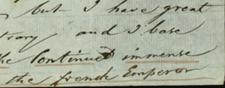 but I have great
trary and I base
the Continued immense
the french Emperor